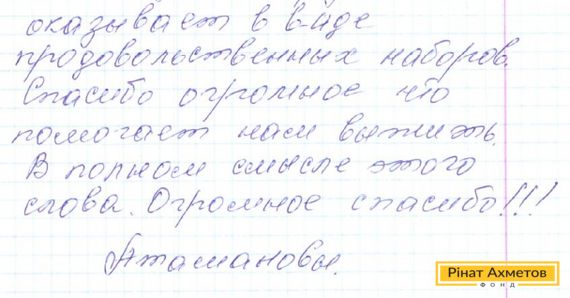 оказывает в виде
продовольственных наборов.
Спасибо огромное что
помогает нам выжить.
В полном смысле этого
слова. Огромное спасибо!!!
Атамановы.
Рінат Ахметов
ФОНД